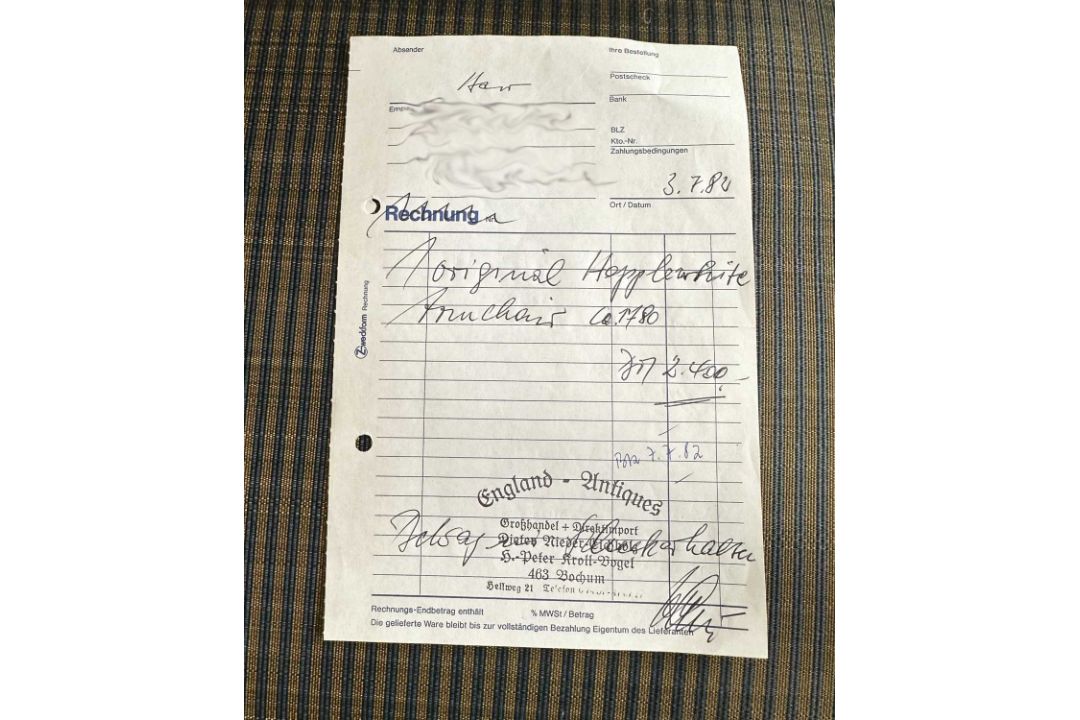 Absender
Ihre Bestellung
Herr
Postscheck
Bank
BLZ
Kto.-Nr.
Zahlungsbedingungen
3.7.82
Ort / Datum
Rechnung Nr.
1 original Hepplewhite
Armchair ca. 1780
Zweckform Rechnung
DM 2.400,-
7.7.82
England - Antiques
Großhandel + Direktimport
Dieter
H.-Peter Kroll-Vogel
463 Bochum
Hellweg 21 Telefon
Betrag erhalten
Rechnungs-Endbetrag enthält % MWSt / Betrag
Die gelieferte Ware bleibt bis zur vollständigen Bezahlung Eigentum des Lieferanten